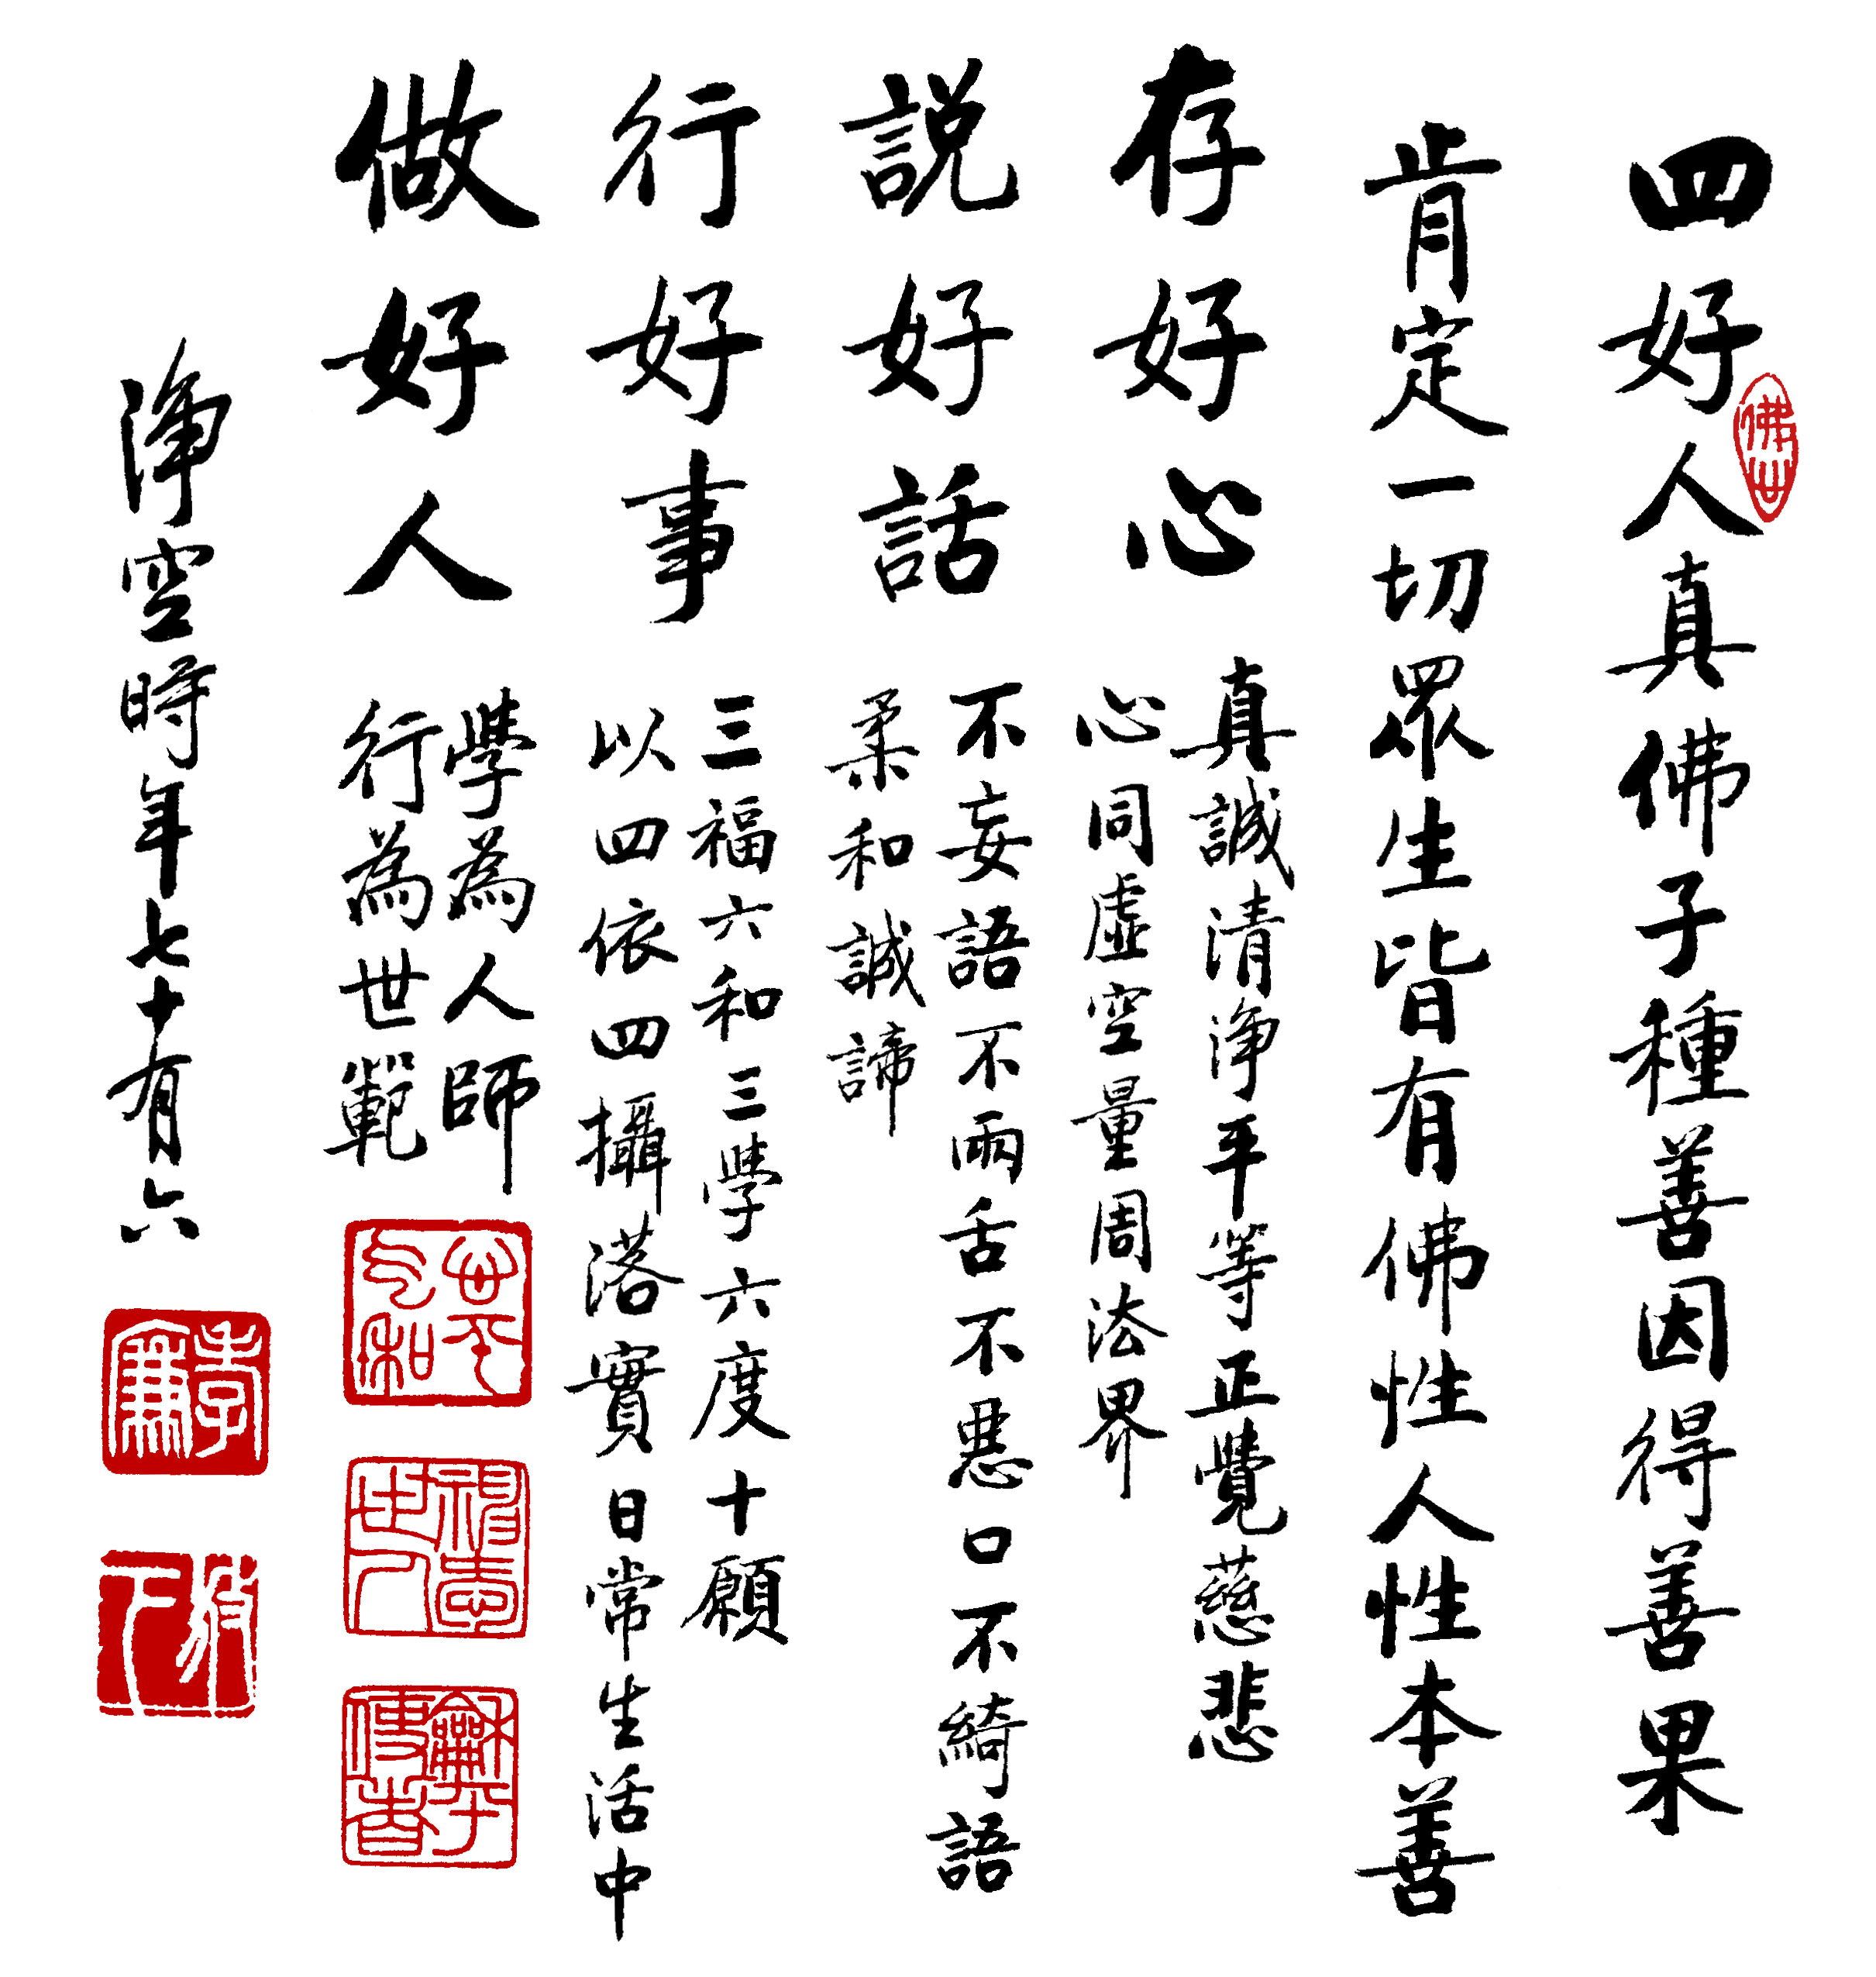 四好人真佛子種善因得善果
肯定一切眾生皆有佛性人性本善
存好心
真誠清淨平等正覺慈悲
心同虛空量周法界
説好話
不妄語不兩舌不惡口不綺語
柔和誠諦
行好事
三福六和三學六度十願
以四依四攝落實日常生活中
做好人
學為人師
行為世範
淨空時年七十有六